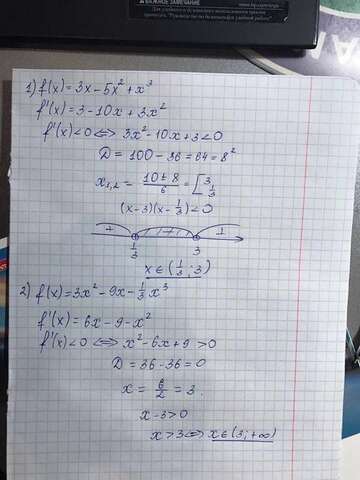 ВАЖНОЕ ЗАМЕЧАНИЕ
1) f(x)=3x-5x²+x³
f'(x)=3-10x+3x²
f'(x)<0 <=> 3x²-10x+3<0
D=100-36=64=8²
x₁,₂ = (10±8)/6 = [3 1/3
(x-3)(x-1/3)<0
+ - +
1/3 3
x∈(1/3;3)
2) f(x)=3x²-9x-1/3x³
f'(x)=6x-9-x²
f'(x)<0 <=> x²-6x+9>0
D=36-36=0
x=6/2=3.
x-3>0
x>3 <=> x∈(3;+∞)